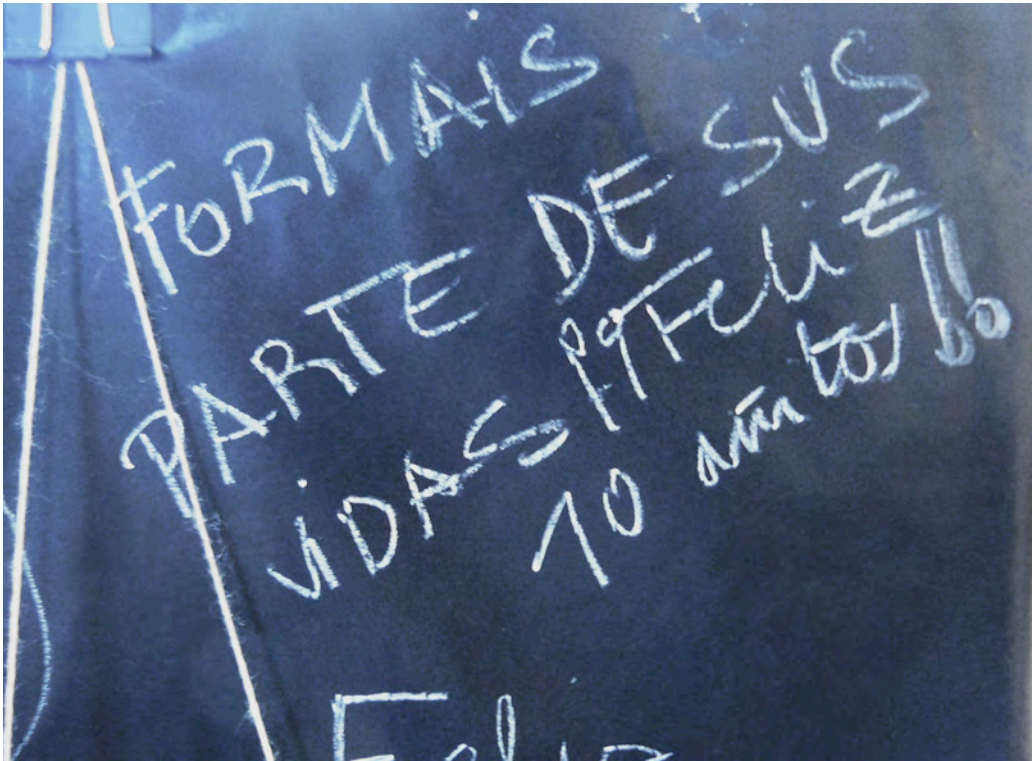 FORMAIS
PARTE DE SUS
VIDAS FELIZ
10 añitos!!
Feliz